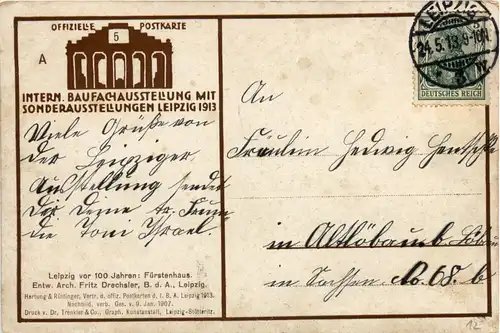 OFFIZIELLE POSTKARTE
5
A
INTERN. BAUFACHAUSSTELLUNG MIT
SONDERAUSSTELLUNGEN LEIPZIG 1913
LEIPZIG
24.5.13.9-10V.
DEUTSCHES REICH
Viele Grüße von
der Leipziger
Ausstellung sendet
Dir Deine tr. Freun
die Toni Israel.
An
Fräulein Hedwig
in Altlöbau b. Löbau
in Sachsen No. 68. b
Leipzig vor 100 Jahren: Fürstenhaus.
Entw. Arch. Fritz Drechsler, B. d. A., Leipzig.
Hartung & Rüdinger, Vertr. d. offiz. Postkarten d. I. B. A. Leipzig 1913.
Nachbild. verb. Ges. v. 9. Jan. 1907.
Druck v. Dr. Trenkler & Co., Graph. Kunstanstalt, Leipzig-Stötteritz.
12